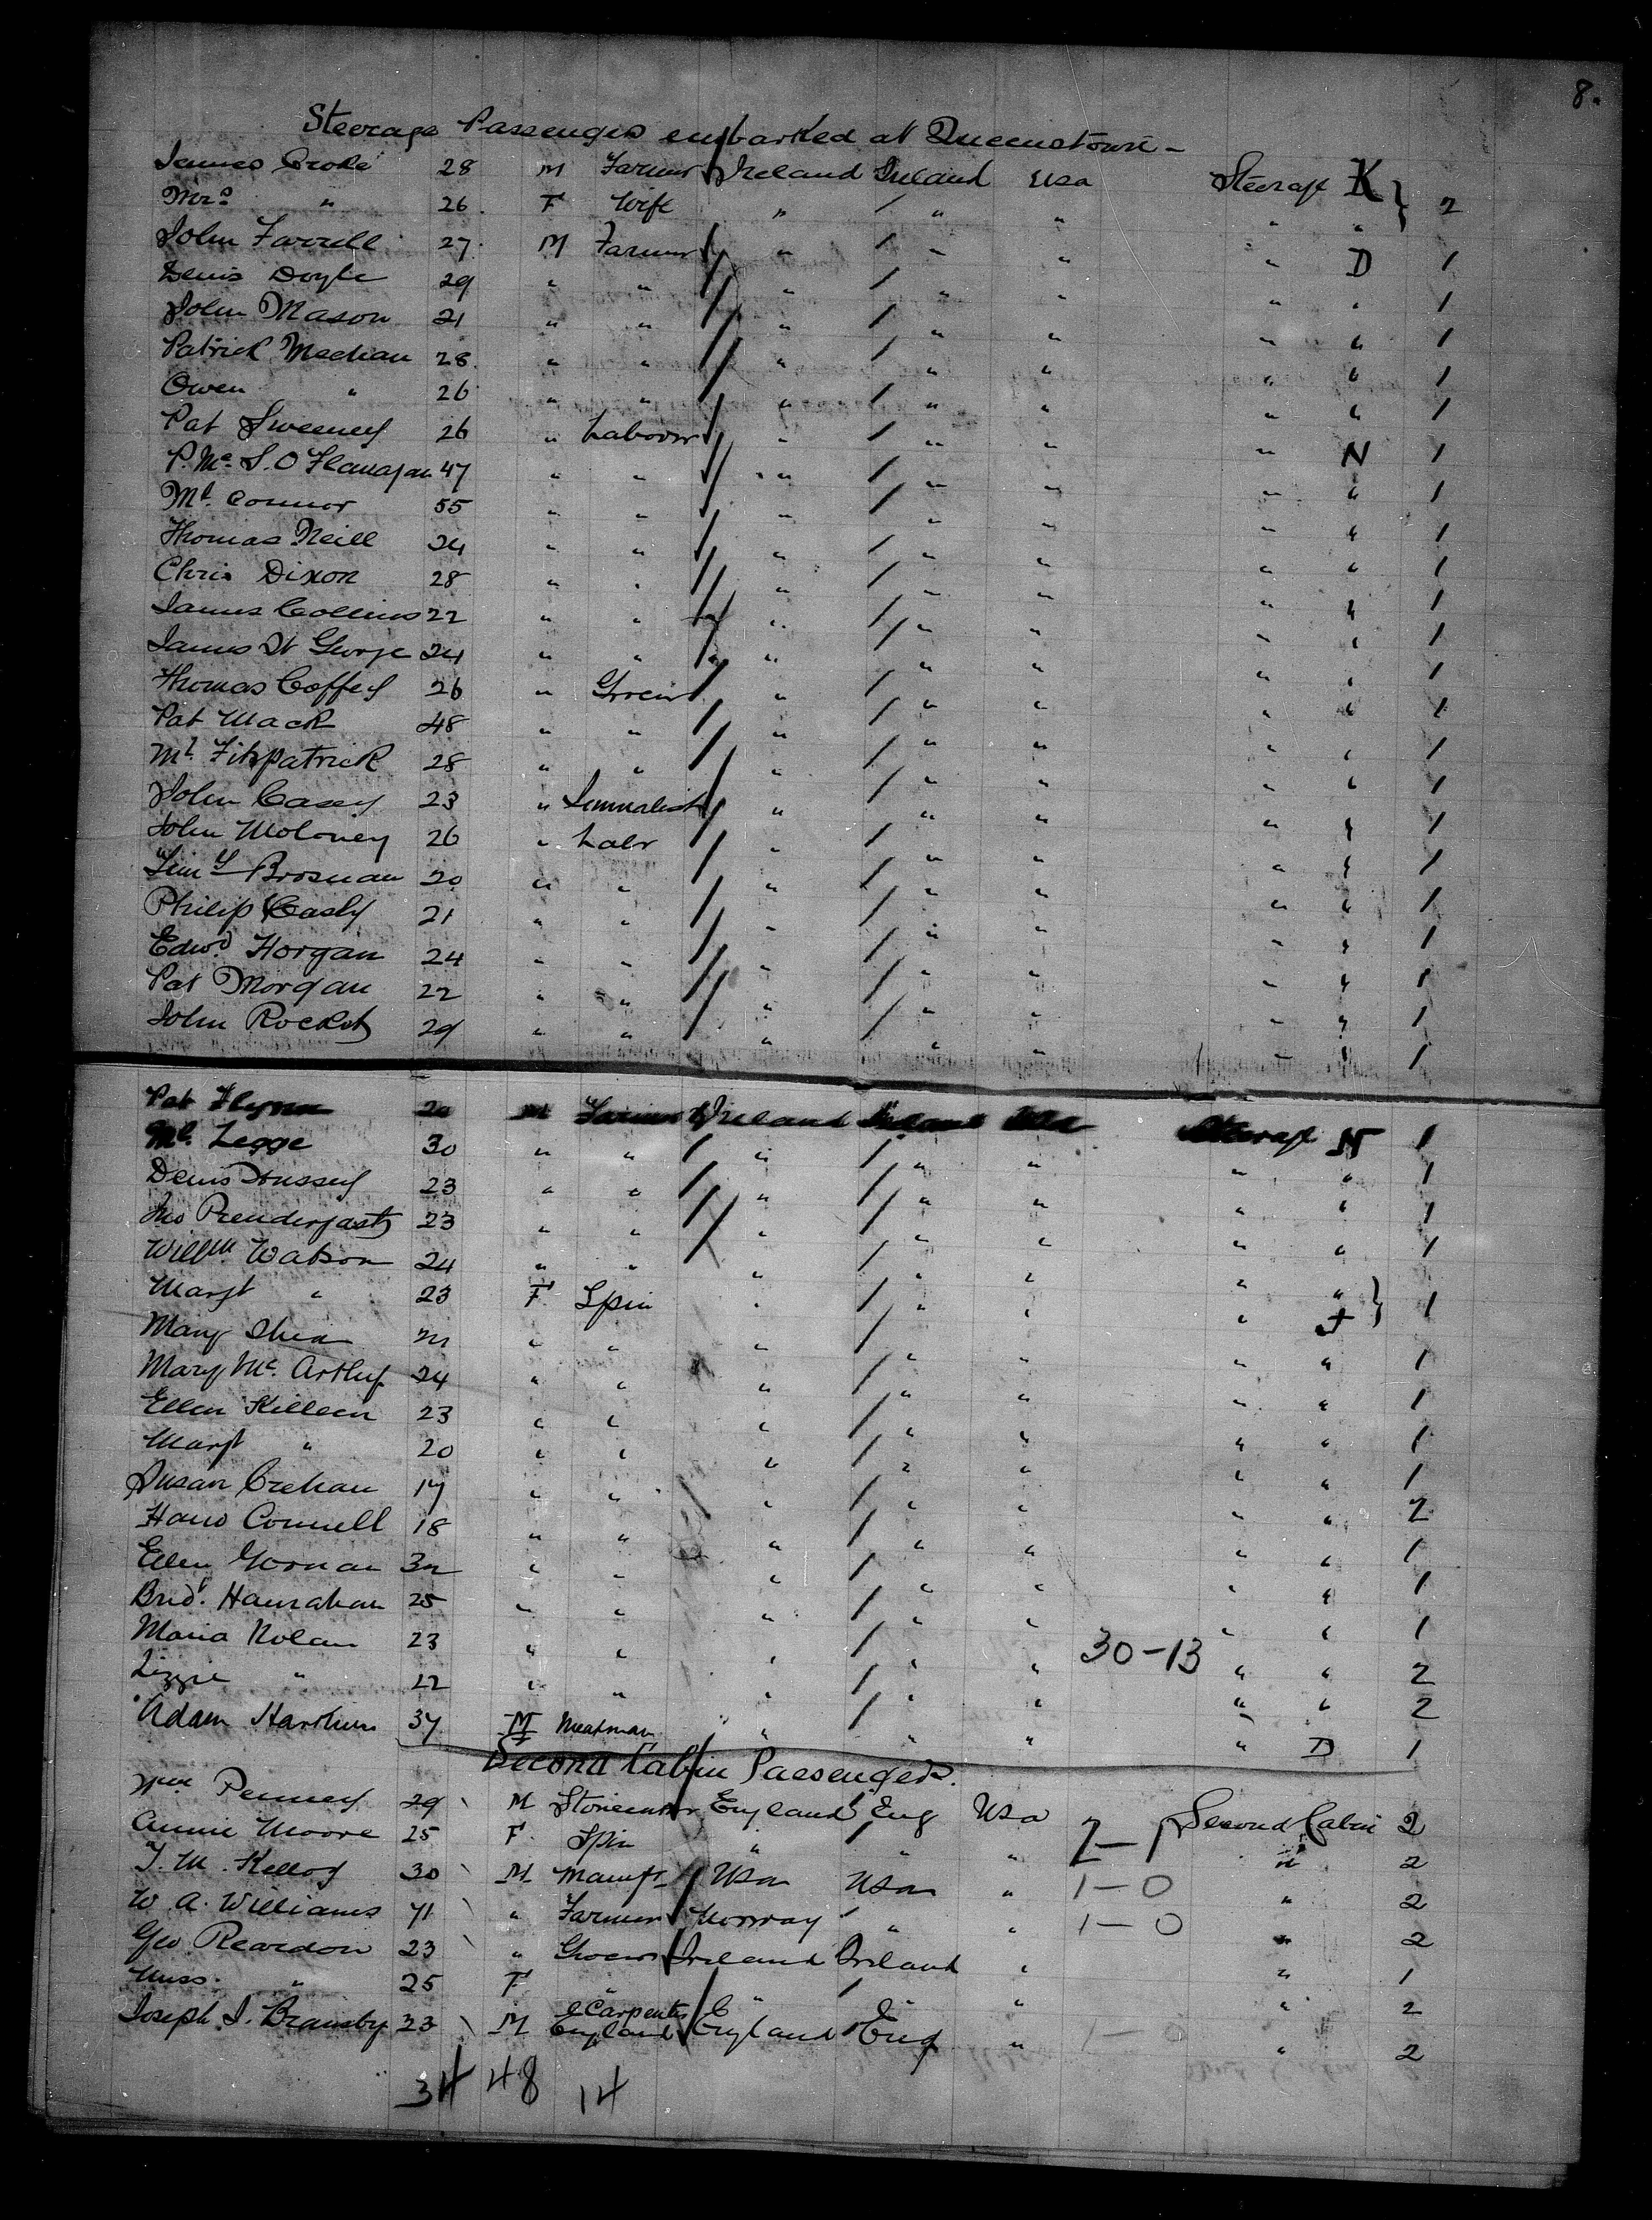 8.
Steerage Passengers embarked at Queenstown -
James 28 M Farmer Ireland Ireland USA Steerage K } 2
Mrs " 26 F Wife " " " " "
John Farrell 27 M Farmer " " " " D 1
Denis Doyle 29 " " " " " " " 1
John Mason 21 " " " " " " " 1
Patrick Meehan 28 " " " " " " " 1
Owen " 26 " " " " " " " 1
Pat Sweeney 26 " Labourer " " " " N 1
P. Mc. S. O Flanagan 47 " " " " " " " 1
Ml. Connor 55 " " " " " " " 1
Thomas Neill 24 " " " " " " " 1
Chris Dixon 28 " " " " " " " 1
James Collins 22 " " " " " " " 1
James St George 24 " " " " " " " 1
Thomas Coffey 26 " Grocer " " " " " 1
Pat Mack 48 " " " " " " " 1
Ml Fitzpatrick 28 " " " " " " " 1
John Casey 23 " Journalist " " " " " 1
John Moloney 26 " Labr " " " " " 1
Timy Brosnan 20 " " " " " " " 1
Philip Casly 21 " " " " " " " 1
Edwd Horgan 24 " " " " " " " 1
Pat Morgan 22 " " " " " " " 1
John Rocket 29 " " " " " " " 1
Pat Flynn 20 M Farmer Ireland Ireland USA Steerage N 1
Ml. Legge 30 " " " " " " " 1
Denis Hussey 23 " " " " " " " 1
Jno Prendergast 23 " " " " " " " 1
Willm Watson 24 " " " " " " " } 1
Margt " 23 F Spin " " " "
Mary Shea 21 " " " " " " " 1
Mary Mc. Arthy 24 " " " " " " " 1
Ellen Killeen 23 " " " " " " " 1
Margt " 20 " " " " " " " 1
Susan Crehan 17 " " " " " " " 2
Hano Connell 18 " " " " " " " 1
Ellen Gorman 32 " " " " " " " 1
Brid. Hanrahan 25 " " " " " " " 1
Maria Nolan 23 " " " " " 30-13 " " 2
Lizzie " 22 " " " " " " " 2
Adam 37 M Meatman " " " " D 1
Second Cabin Passengers.
Wm Penney 29 M England Eng USA Second Cabin 2
Annie Moore 25 F Spin " " " 2-1 " 2
T. M. Kellog 30 M Manufr USA USA " 1-0 " 2
W. A. Williams 71 " Farmer Norway " " 1-0 " 2
Geo Reardon 23 " Grocer Ireland Ireland " " 1
Miss " 25 F " " " " " 2
Joseph J. Bransby 23 M Carpenter England England Eng " 1-0 " 2
34 48 14